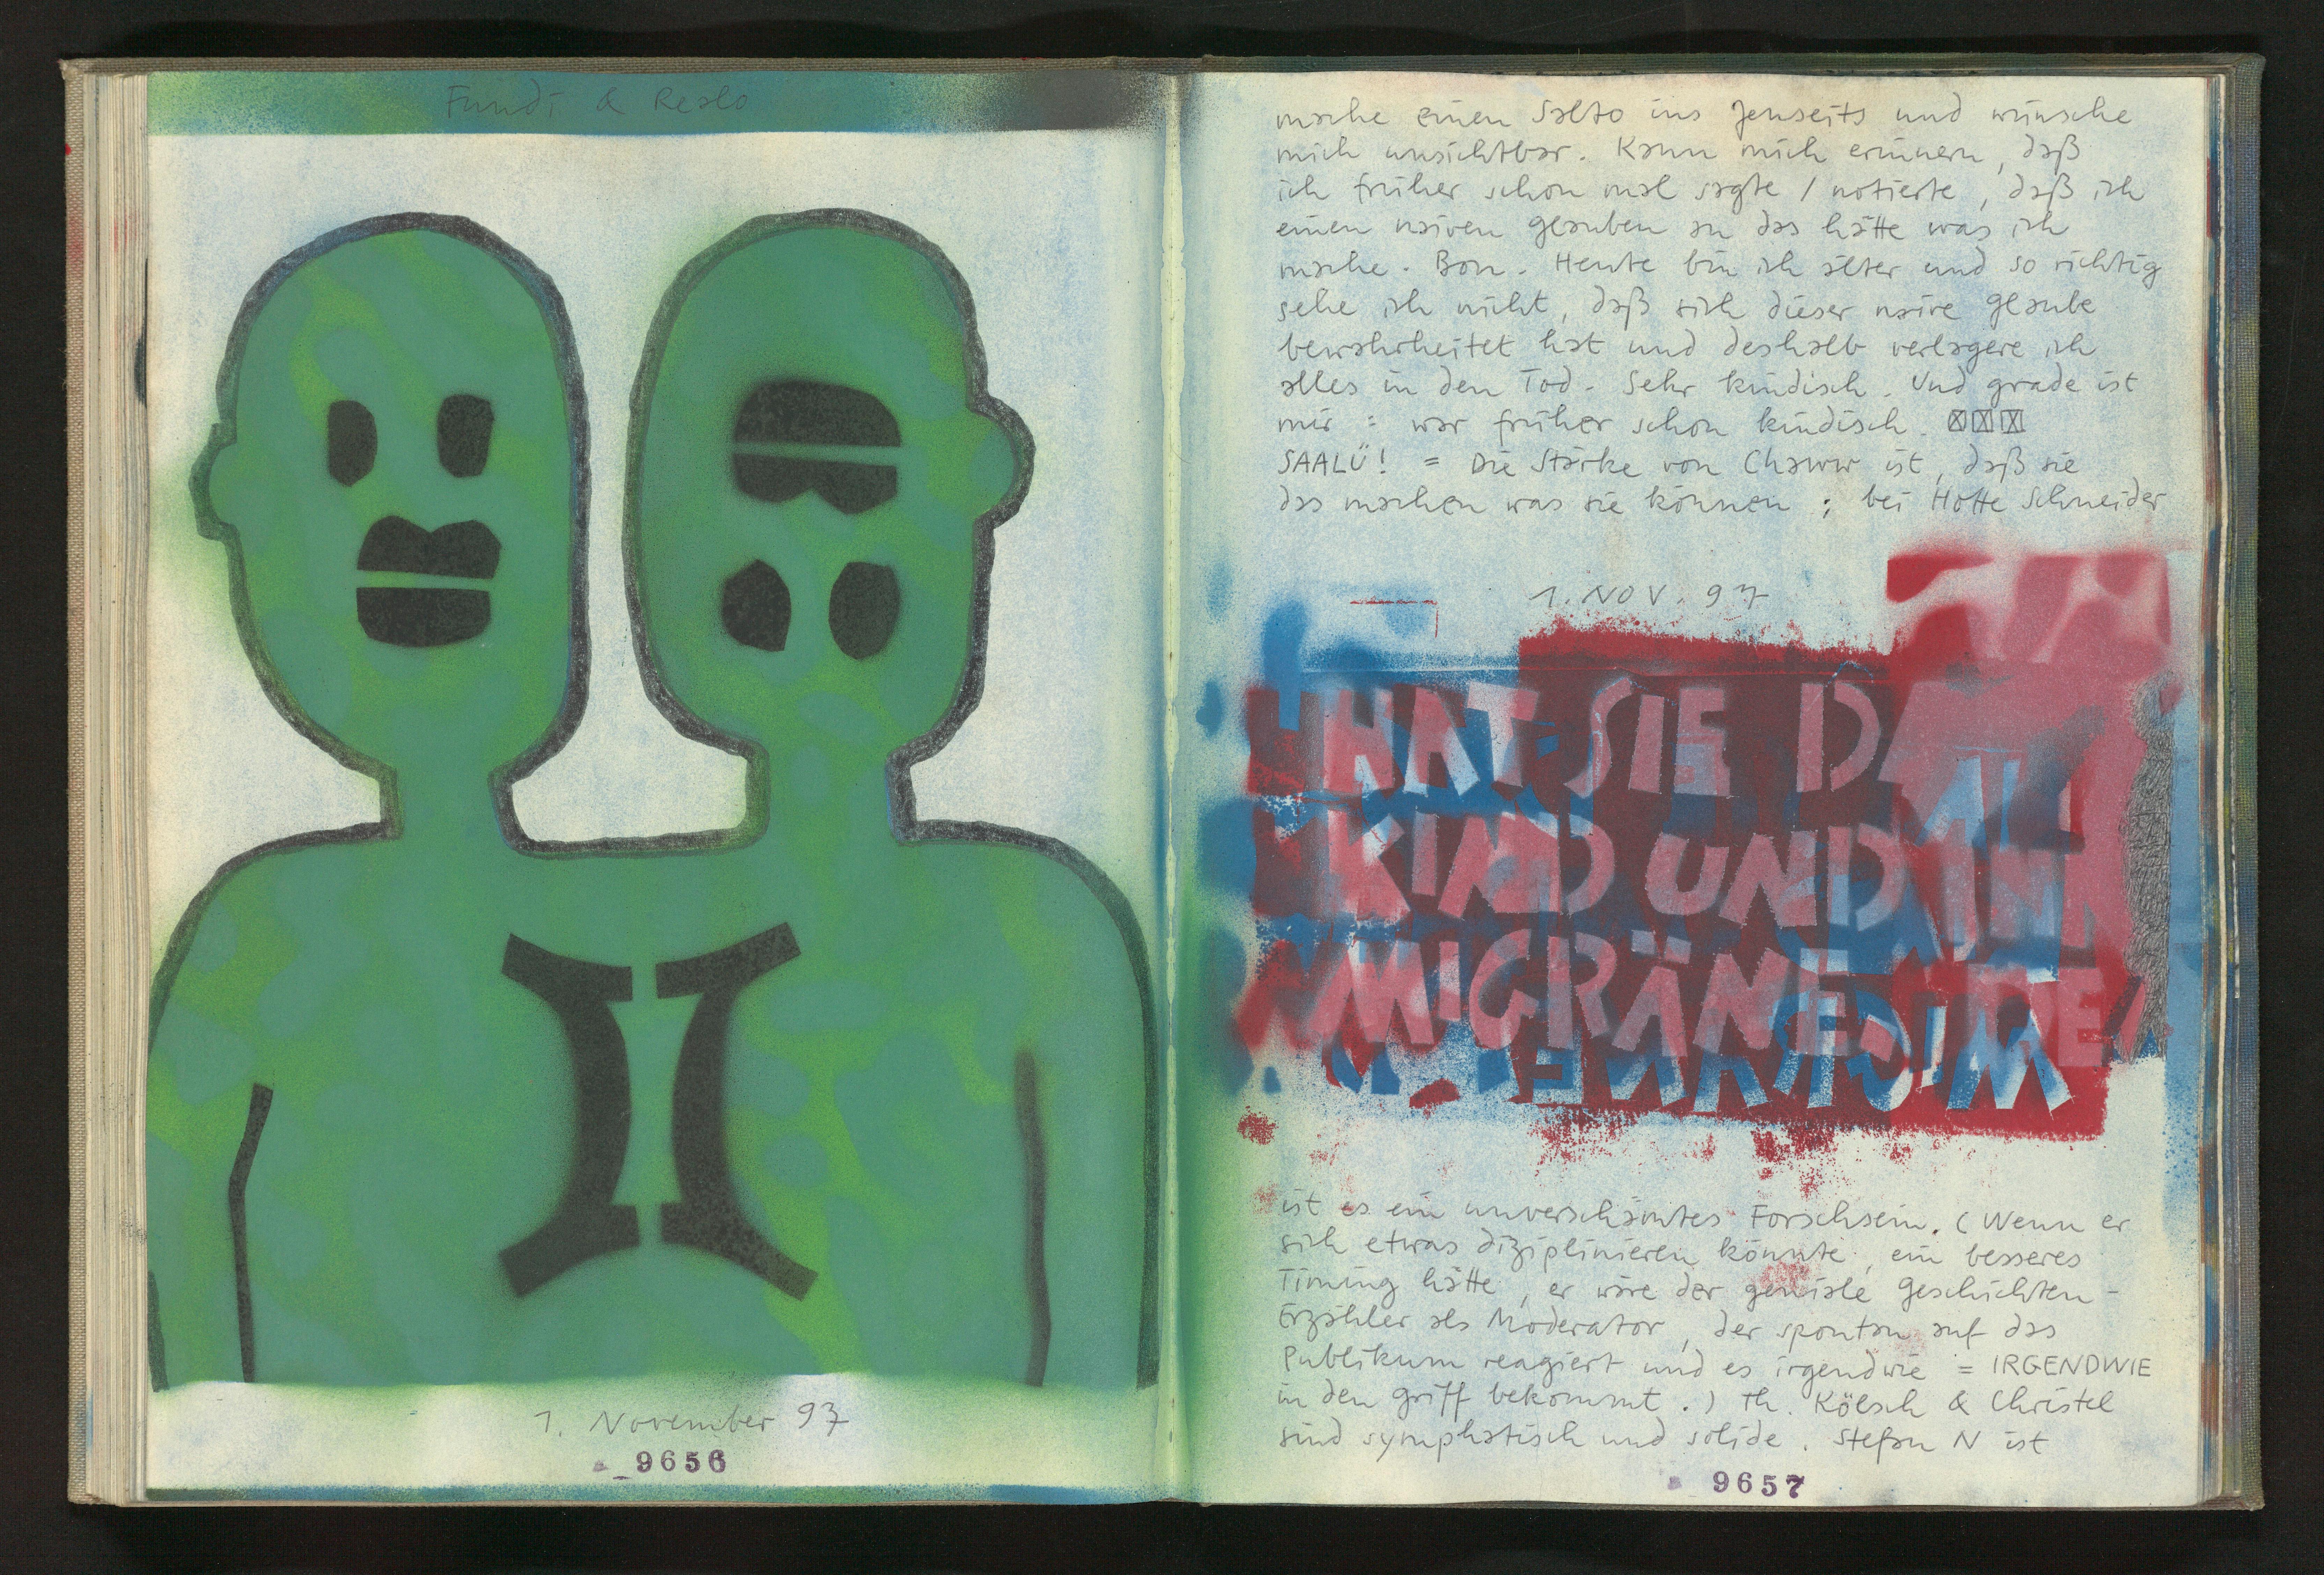 Fundi & Realo
1. November 97
9656
mache einen Salto ins Jenseits und wünsche
mich unsichtbar. Kann mich erinnern, daß
ich früher schon mal sagte / notierte, daß ich
einen naiven Glauben an das hätte was ich
mache. Bon. Heute bin ich älter und so richtig
sehe ich nicht, daß sich dieser naive Glaube
bewahrheitet hat und deshalb verlagere ich
alles in den Tod. Sehr kindisch. Und grade ist
mir : war früher schon kindisch.
SAALÜ! = Die Stärke von Chaww ist, daß sie
das machen was sie können ; bei Hotte Schneider
1. NOV. 97
HAT SIE DA
KIND UND
MIGRÄNE.
ist es ein unverschämtes Forschsein. (Wenn er
sich etwas diziplinieren könnte, ein besseres
Timing hätte, er wäre der geniale Geschichten-
Erzähler als Moderator, der spontan auf das
Publikum reagiert und es irgendwie = IRGENDWIE
in den Griff bekommt.) Th. Kölsch & Christel
sind symphatisch und solide. Stefan N ist
9657